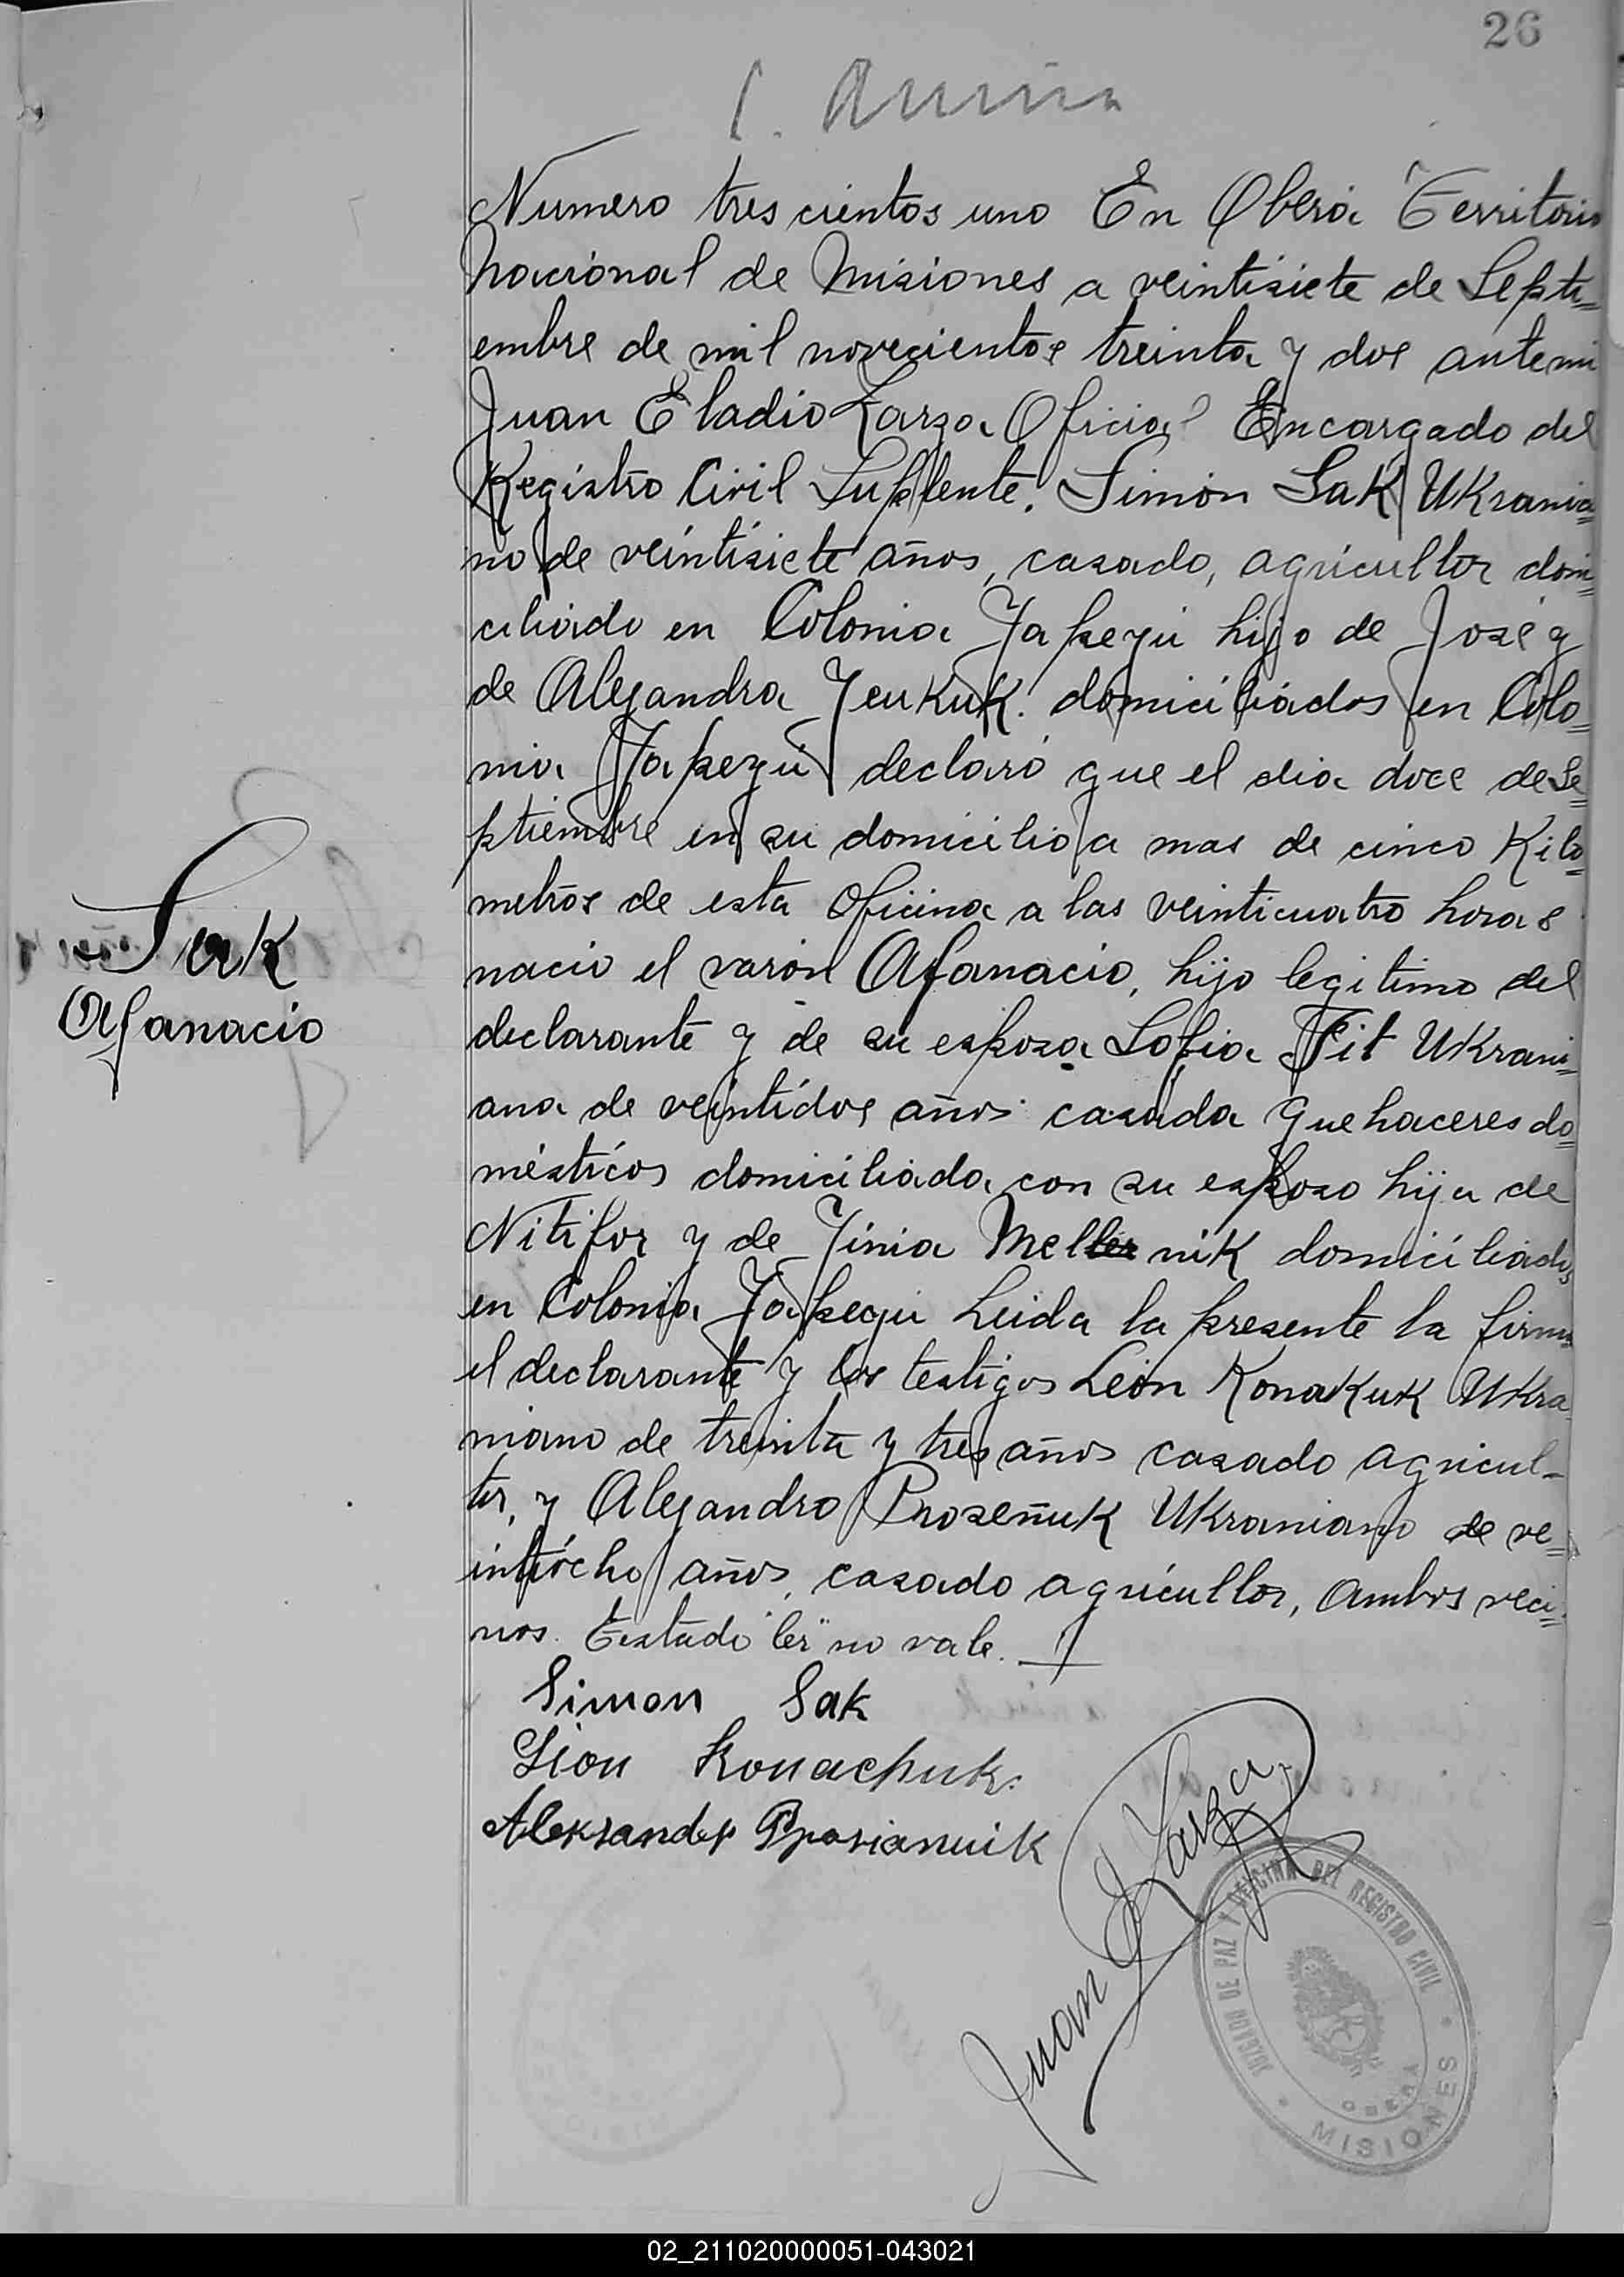 26
Numero tres cientos uno En Oberá Territorio
nacional de Misiones a veintisiete de Septi=
embre de mil novecientos treinta y dos ante mi
Juan Eladio Larza Oficial Encargado del
Registro Civil Suplente. Simón Sak Ukrania=
no de veintisiete años, casado, agricultor domi=
ciliado en Colonia Yapeyú hijo de José y
de Alejandra Yeukuk. domiciliados en Colo=
nia Yapeyú declaró que el dia doce de Se=
ptiembre en su domicilio a mas de cinco Kilo=
metros de esta Oficina a las veinticuatro horas
nació el varón Afanacio, hijo legitimo del
declarante y de su esposa Sofia Fit Ukrani=
ana de veintidos años casada quehaceres do=
mésticos domiciliada con su esposo hija de
Nitifor y de Jinia Meller nik domiciliados
en Colonia Yapeyú Leida la presente la firma
el declarante y los testigos León Konakuk Ukra=
niano de treinta y tres años casado agricul-
tor, y Alejandro Proseñuk Ukraniano de ve=
intiócho años, casado agricultor, Ambos veci=
nos. Testado "ler" no vale.
Sak
Afanacio
Simon Sak
Lion Konachuk.
Aleksander Prosianiuik
Juan E Larza
JUZGADO DE PAZ Y OFICINA DEL REGISTRO CIVIL
OBERA
MISIONES
02_211020000051-043021